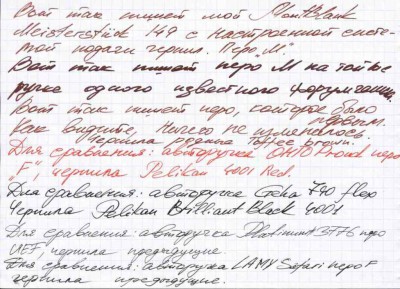 Вот так пишет мой Montblank
Meisterstück 149 с настроенной систе-
мой подачи чернил. Перо „М".
Вот так пишет перо М на той же
ручке одного известного форумчанина.
Вот так пишет перо, которое было
первым.
Как видите, ничего не изменилось.
Чернила родные Toffee brown.
Для сравнения: авторучка OHTO Proud перо
„F", чернила Pelikan 4001 Red.
Для сравнения: авторучка Geha 790 flex
Чернила Pelikan Brilliant Black 4001
Для сравнения: авторучка Platinum 3776 перо
UEF, чернила предыдущие.
Для сравнения: авторучка LAMY Safari перо F
чернила предыдущие.